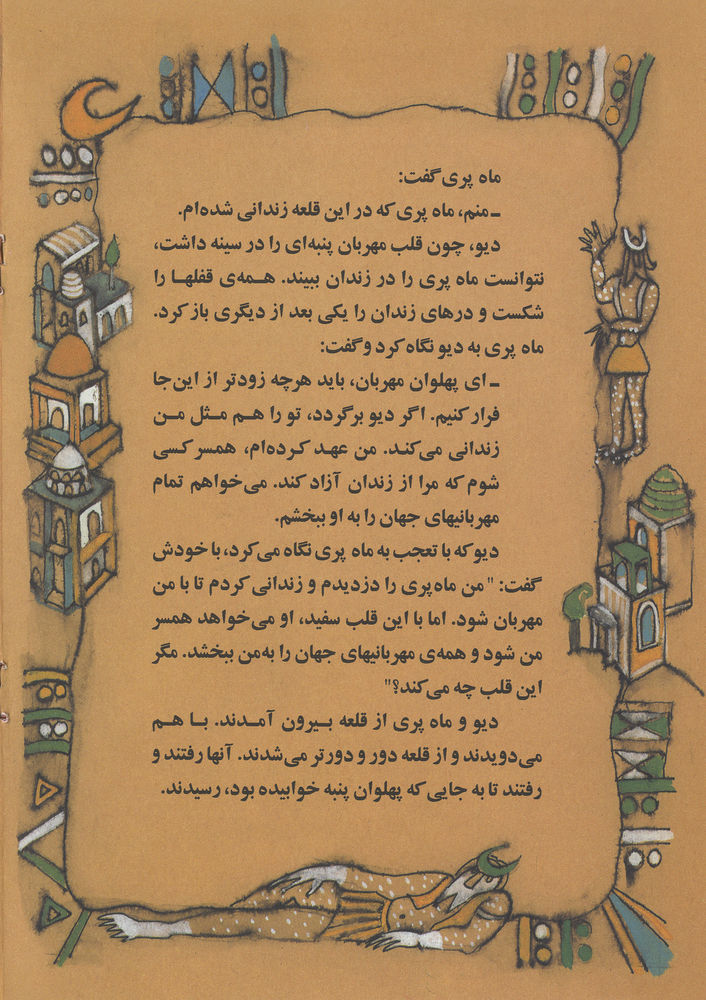 ماه پری گفت:
ـ منم، ماه پری که در این قلعه زندانی شده‌ام.
دیو، چون قلب مهربان پنبه‌ای را در سینه داشت،
نتوانست ماه پری را در زندان ببیند. همه‌ی قفلها را
شکست و درهای زندان را یکی بعد از دیگری باز کرد.
ماه پری به دیو نگاه کرد و گفت:
ـ ای پهلوان مهربان، باید هرچه زودتر از این‌جا
فرار کنیم. اگر دیو برگردد، تو را هم مثل من
زندانی می‌کند. من عهد کرده‌ام، همسر کسی
شوم که مرا از زندان آزاد کند. می‌خواهم تمام
مهربانیهای جهان را به او ببخشم.
دیو که با تعجب به ماه پری نگاه می‌کرد، با خودش
گفت: "من ماه‌پری را دزدیدم و زندانی کردم تا با من
مهربان شود. اما با این قلب سفید، او می‌خواهد همسر
من شود و همه‌ی مهربانیهای جهان را به‌من ببخشد. مگر
این قلب چه می‌کند؟"
دیو و ماه پری از قلعه بیرون آمدند. با هم
می‌دویدند و از قلعه دور و دورتر می‌شدند. آنها رفتند و
رفتند تا به جایی که پهلوان پنبه خوابیده بود، رسیدند.